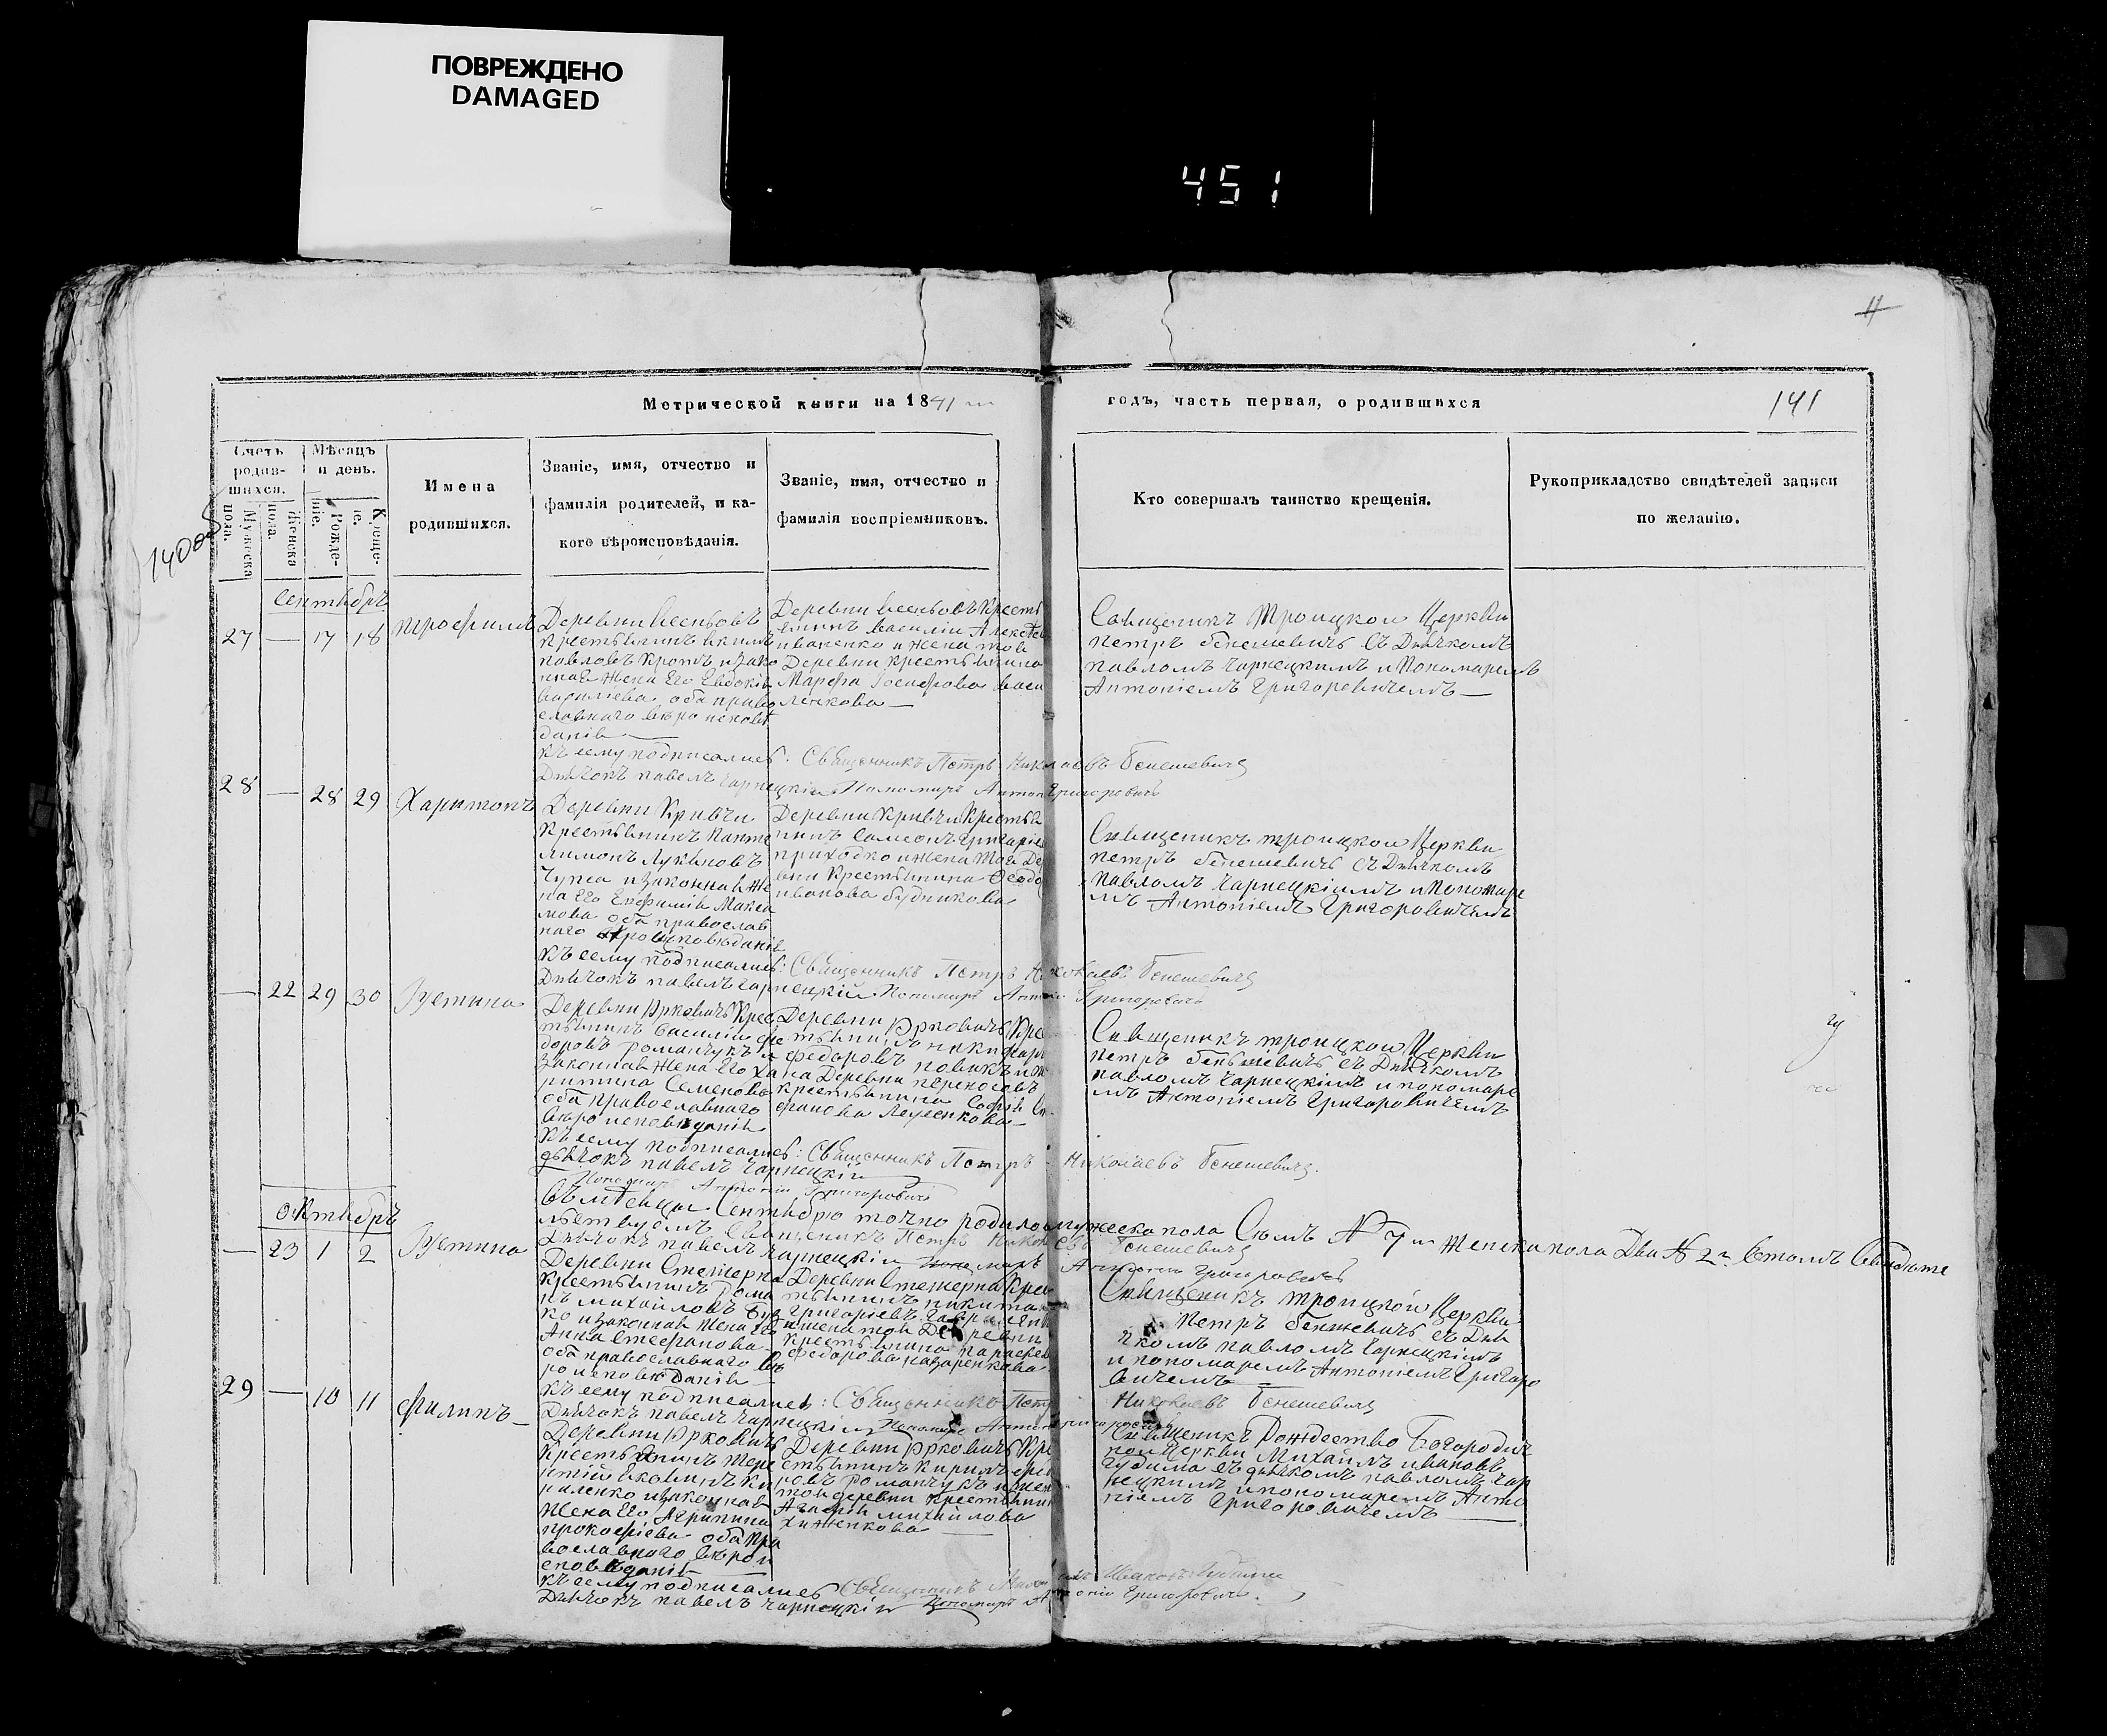 ПОВРЕЖДЕНО
DAMAGED
451
11
Метрической книги на 1841 годъ, часть первая, о родившихся
141
Счетъ родившихся.
Мужеска пола.
Женска пола.
Мѣсяцъ и день.
Рожденіе.
Крещеніе.
Имена родившихся.
Званіе, имя, отчество и фамилія родителей, и какого вѣроисповѣданія.
Званіе, имя, отчество и фамилія воспріемниковъ.
Кто совершалъ таинство крещенія.
Рукоприкладство свидѣтелей записи по желанію.
Сентябрь
27 — 17 18
Трофимъ
Деревни
крестьянинъ
павловъ кротъ и зако
ная жена Его Евдокія
василиева оба право
славнаго вѣро исповѣ
данія
Деревни
василій Алексѣев
иваненко и жена тоя
Деревни крестьянина
Марфа василенкова
Священикъ Троицкой Церкви
петръ бенешевичъ съ Дьячкомъ
павломъ чарнецкимъ и Пономаремъ
Антоніемъ Григоревичемъ
къ сему подписались: Священникъ Петръ Николаевъ Бенешевичъ
Дьячокъ павелъ чарнецкій Пономарь Антон Григоровичъ
28 — 28 29
Харитонъ
Деревни Кривчи
крестьянинъ Панте
лимонъ Лукьяновъ
Чупса и законная же
на Его Евфимія Макси
мова оба православ
наго вѣроисповѣданія
Деревни Кривчи Крестья
нинъ Самсонъ Григоріев
приходко и жена тоя Де
вни Крестьянина Феодо
иванова будникова
Священикъ троицкой Церкви
петръ бенешевичъ съ Дьячкомъ
павломъ чарнецкіимъ и Пономаре
мъ Антоніемъ Григоровичемъ
къ сему подписались: Священникъ Петръ Николаевъ Бенешевичъ
Дьячокъ павелъ чарнецкій Пономарь Антоній Григоровичъ
— 22 29 30
Устина
Деревни Юрковичъ Крес
тьянинъ василій фе
доровъ романчукъ и
законная жена Его Ха
ритина Семенова
оба православнаго
вѣроисповѣданія
Деревни Юрковичъ Кре
стьянинъ
федоровъ новикъ и же
на Деревни переносовъ
крестьянина Софія Сте
фанова
Священикъ троицкой Церкви
петръ бенешевичъ съ Дьячкомъ
павломъ чарнецкімъ и пономаре
мъ Антоніемъ Григоровичемъ
къ сему подписались: Священникъ Петръ Николаевъ Бенешевичъ.
дьячокъ павелъ чарнецкій
Пономарь Антоній Григоровичъ
въ мѣсяцы Сентябрю точно родилось мужеска пола Сѣмъ № 7 и женска пола Два № 2 вътомъ Свидѣте
льствуемъ Священикъ Петръ Николаевъ Бенешевичъ
Дьячокъ павелъ чарнецкій Пономарь Антоній Григоровичъ
Октябрь
— 23 1 2
Устина
Деревни Стежерна
крестьянинъ Рома
нъ михайловъ
ко и законная жена Его
Анна стефанова
оба православнаго вѣ
роисповѣданія
Деревни Стежерна Крес
тьянинъ никита
Григоріевъ
и жена той Деревни
крестьянина параскев
федорова назаренкова
Священикъ троицкой Церкви
Петръ бенешевичъ съ Дья
чкомъ павломъ чарнецкімъ
и пономаремъ Антоніемъ Григоро
вичемъ
къ сему подписались: Священникъ Петръ Николаевъ Бенешевичъ
Дьячокъ павелъ чарнецкій Пономарь Антоній Григоровичъ
29 — 10 11
Филипъ
Деревни Юрковичъ
Крестьянинъ Тере
нтій Яковлевъ Ки
риленко и законная
жена Его Агрипина
прокофіева оба пра
вославнаго вѣрои
сповѣданія
Деревни Юрковичъ Кре
стьянинъ Кирилъ
новъ романчукъ и жен
той деревни крестьянин
Агафія михайлова
хиженкова
Священикъ Рождество Богородич
ной Церкви Михаилъ ивановъ
Гудима съ дьячкомъ павломъ чар
нецкимъ и пономаремъ Анто
ніемъ Григоровичемъ
къ сему подписались Священникъ Михаилъ Ивановъ Гудима
Дьячокъ павелъ чарнецкій Пономарь Антоній Григоровичъ.